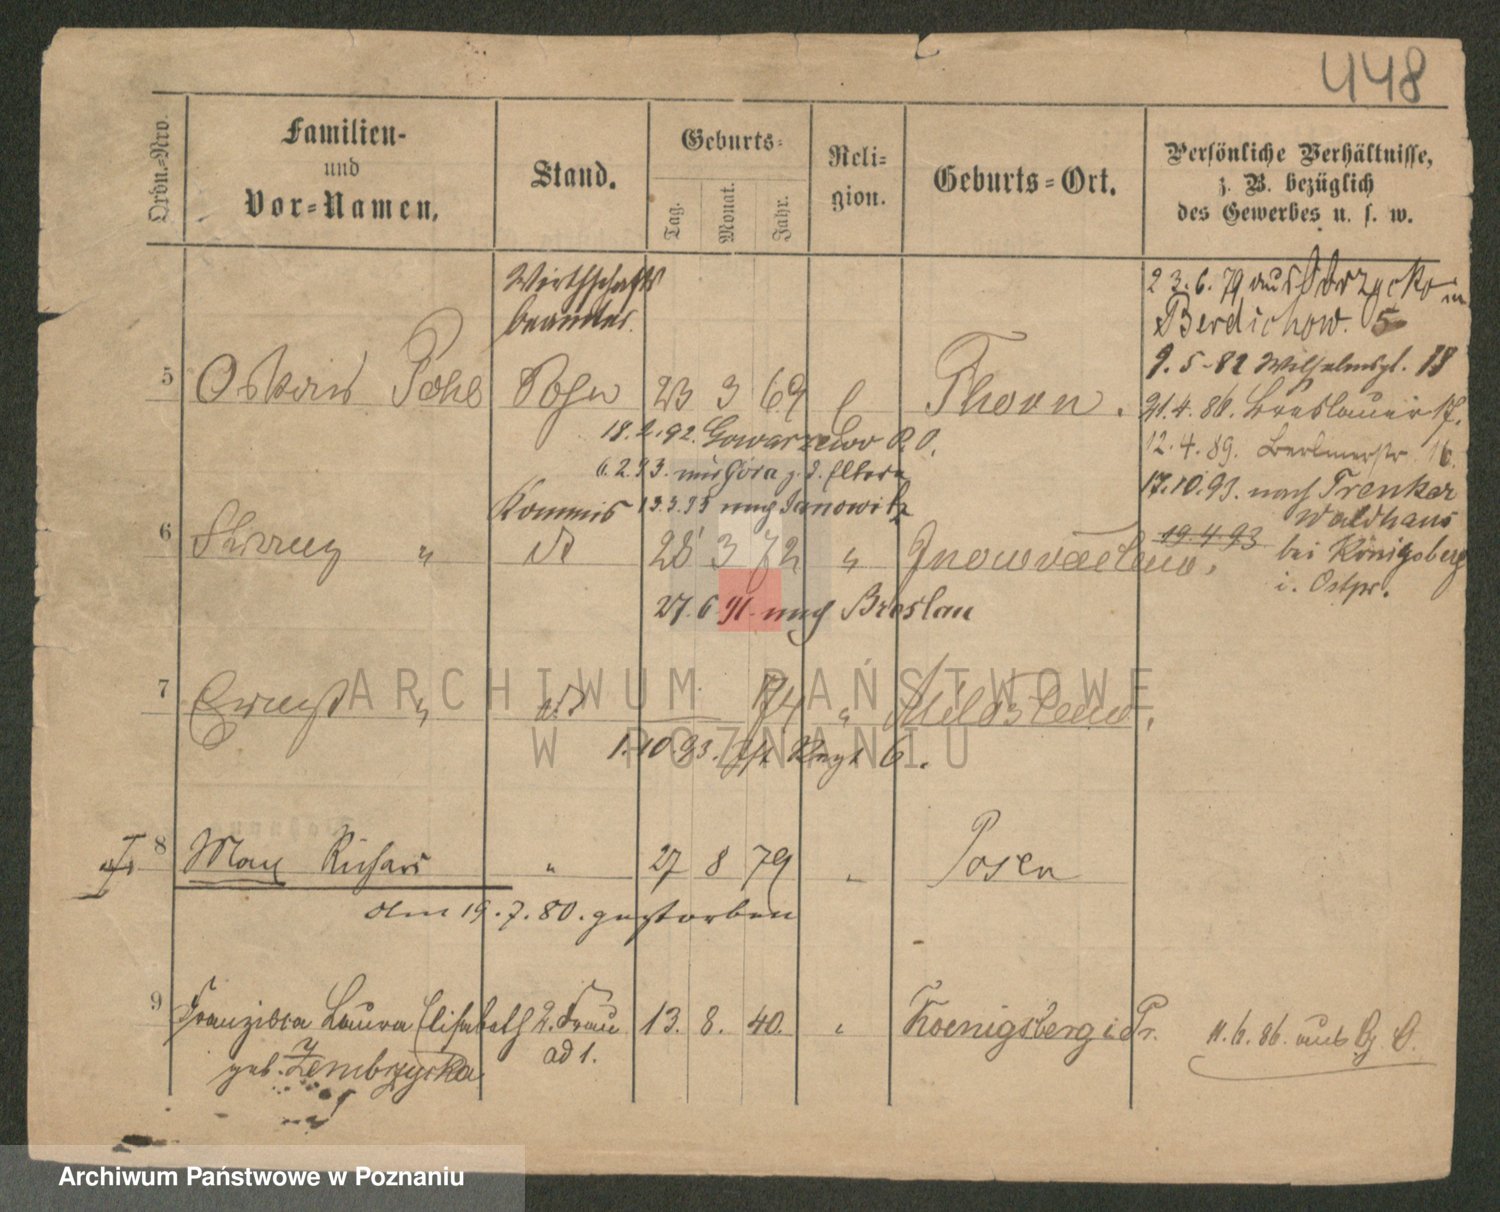 448
Ordn.-Nro.
Familien-
und
Vor-Namen.
Stand.
Geburts-
Tag.
Monat.
Jahr.
Reli-
gion.
Geburts-Ort.
Persönliche Verhältnisse,
z. B. bezüglich
des Gewerbes u. s. w.
Wirthschafts
beamter
23.6.79 aus Obrzycko in
Berdichow. 5
9.5-82 Wilhelmspl. 18
5 Oskar Pohl Sohn 23 3 69 Thorn.
21.4.86. Breslauer 17.
18.2.92. Gowarzewo P. O.
12.4.89. Berlinerstr. 16.
6.2.93. z. d. Eltern
17.10.93. nach Trenker
Waldhaus
bei Königsberg
i. Ostpr.
19.4.93
Kommis 13.3.93 nach Janowitz
6 " dt 28 3 72 " Inowraclaw.
27.6.91. nach Breslau
7 Ernst " dt 74 " Miloslaw.
1.10.93. Regt 6.
8 Max Richard " 27 8 79 " Posen
Am 19.7.80. gestorben
9 Franziska Laura Elisabeth 2. Frau 13. 8. 40. " Koenigsberg i Pr.
ad 1.
geb. Zembrzycka
11.6.86. aus
ARCHIWUM PAŃSTWOWE
W POZNANIU
Archiwum Państwowe w Poznaniu